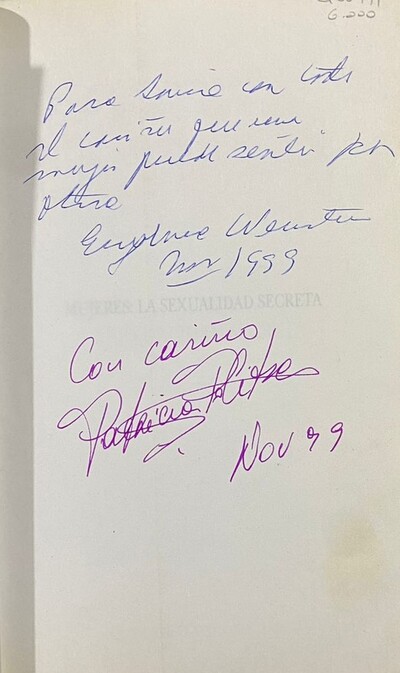 6.000
Para Sonia con todo
el cariño que una
mujer puede sentir por
otra
Eugenia Weinstein
Nov 1999
MUJERES: LA SEXUALIDAD SECRETA
Con cariño,
Patricia
Nov 99